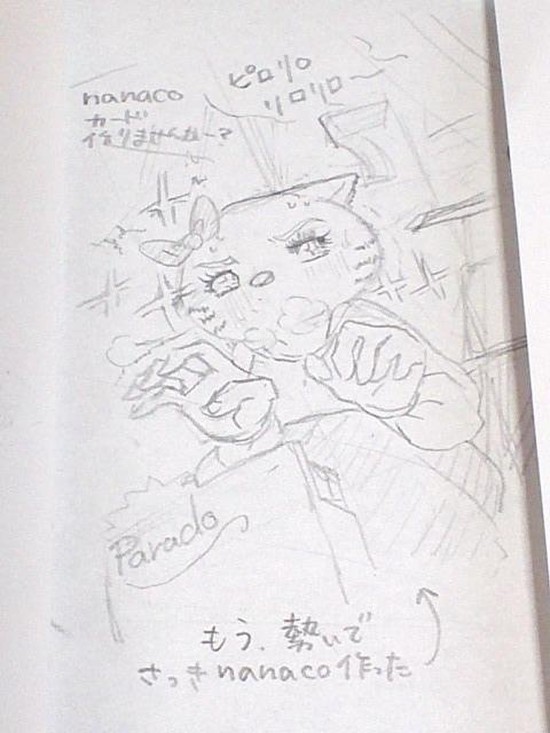 nanaco
カード
作りませんかー?
ピロリロ
リロリロ〜
Parado
もう、勢いで
さっきnanaco作った